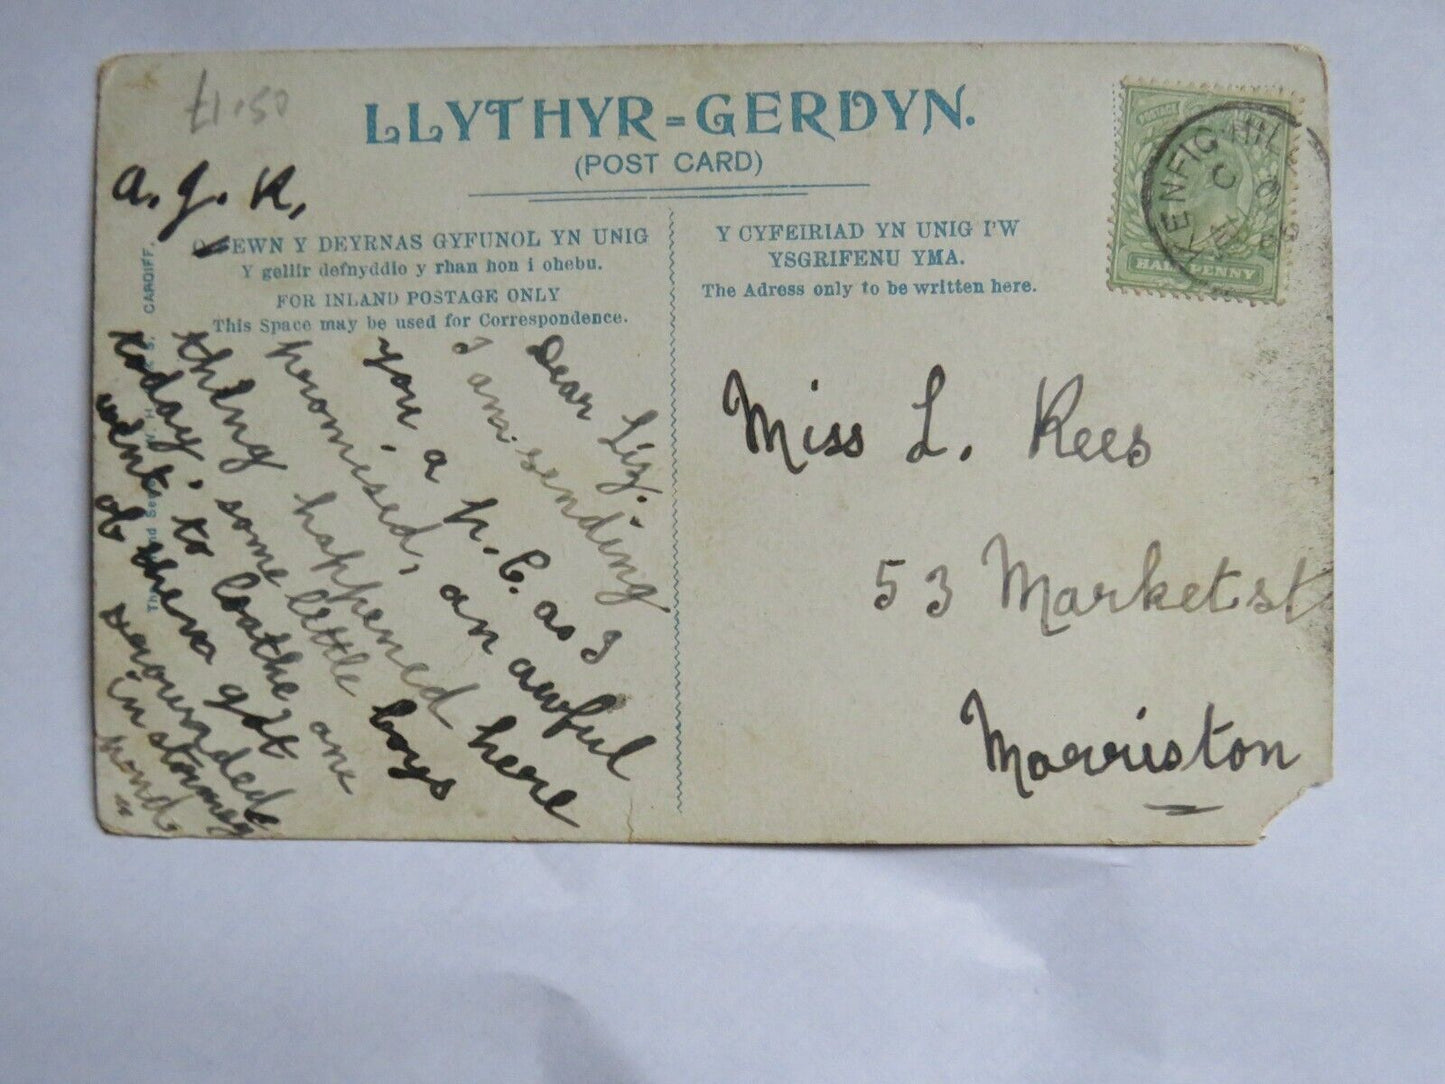 £1.50
LLYTHYR=GERDYN.
(POST CARD)
a. J. R.
EWN Y DEYRNAS GYFUNOL YN UNIG
Y gellir defnyddio y rhan hon i ohebu.
FOR INLAND POSTAGE ONLY
This Space may be used for Correspondence.
Y CYFEIRIAD YN UNIG I'W
YSGRIFENU YMA.
The Adress only to be written here.
HALFPENNY
KENFIG HILL
CARDIFF.
Dear Liz.
I am sending
you a p. c. as I
promised, an awful
thing happened here
today, some little boys
went to bathe, one
of them got
drowned
in stormy
pond.
Miss L. Rees
53 Market st
Morriston